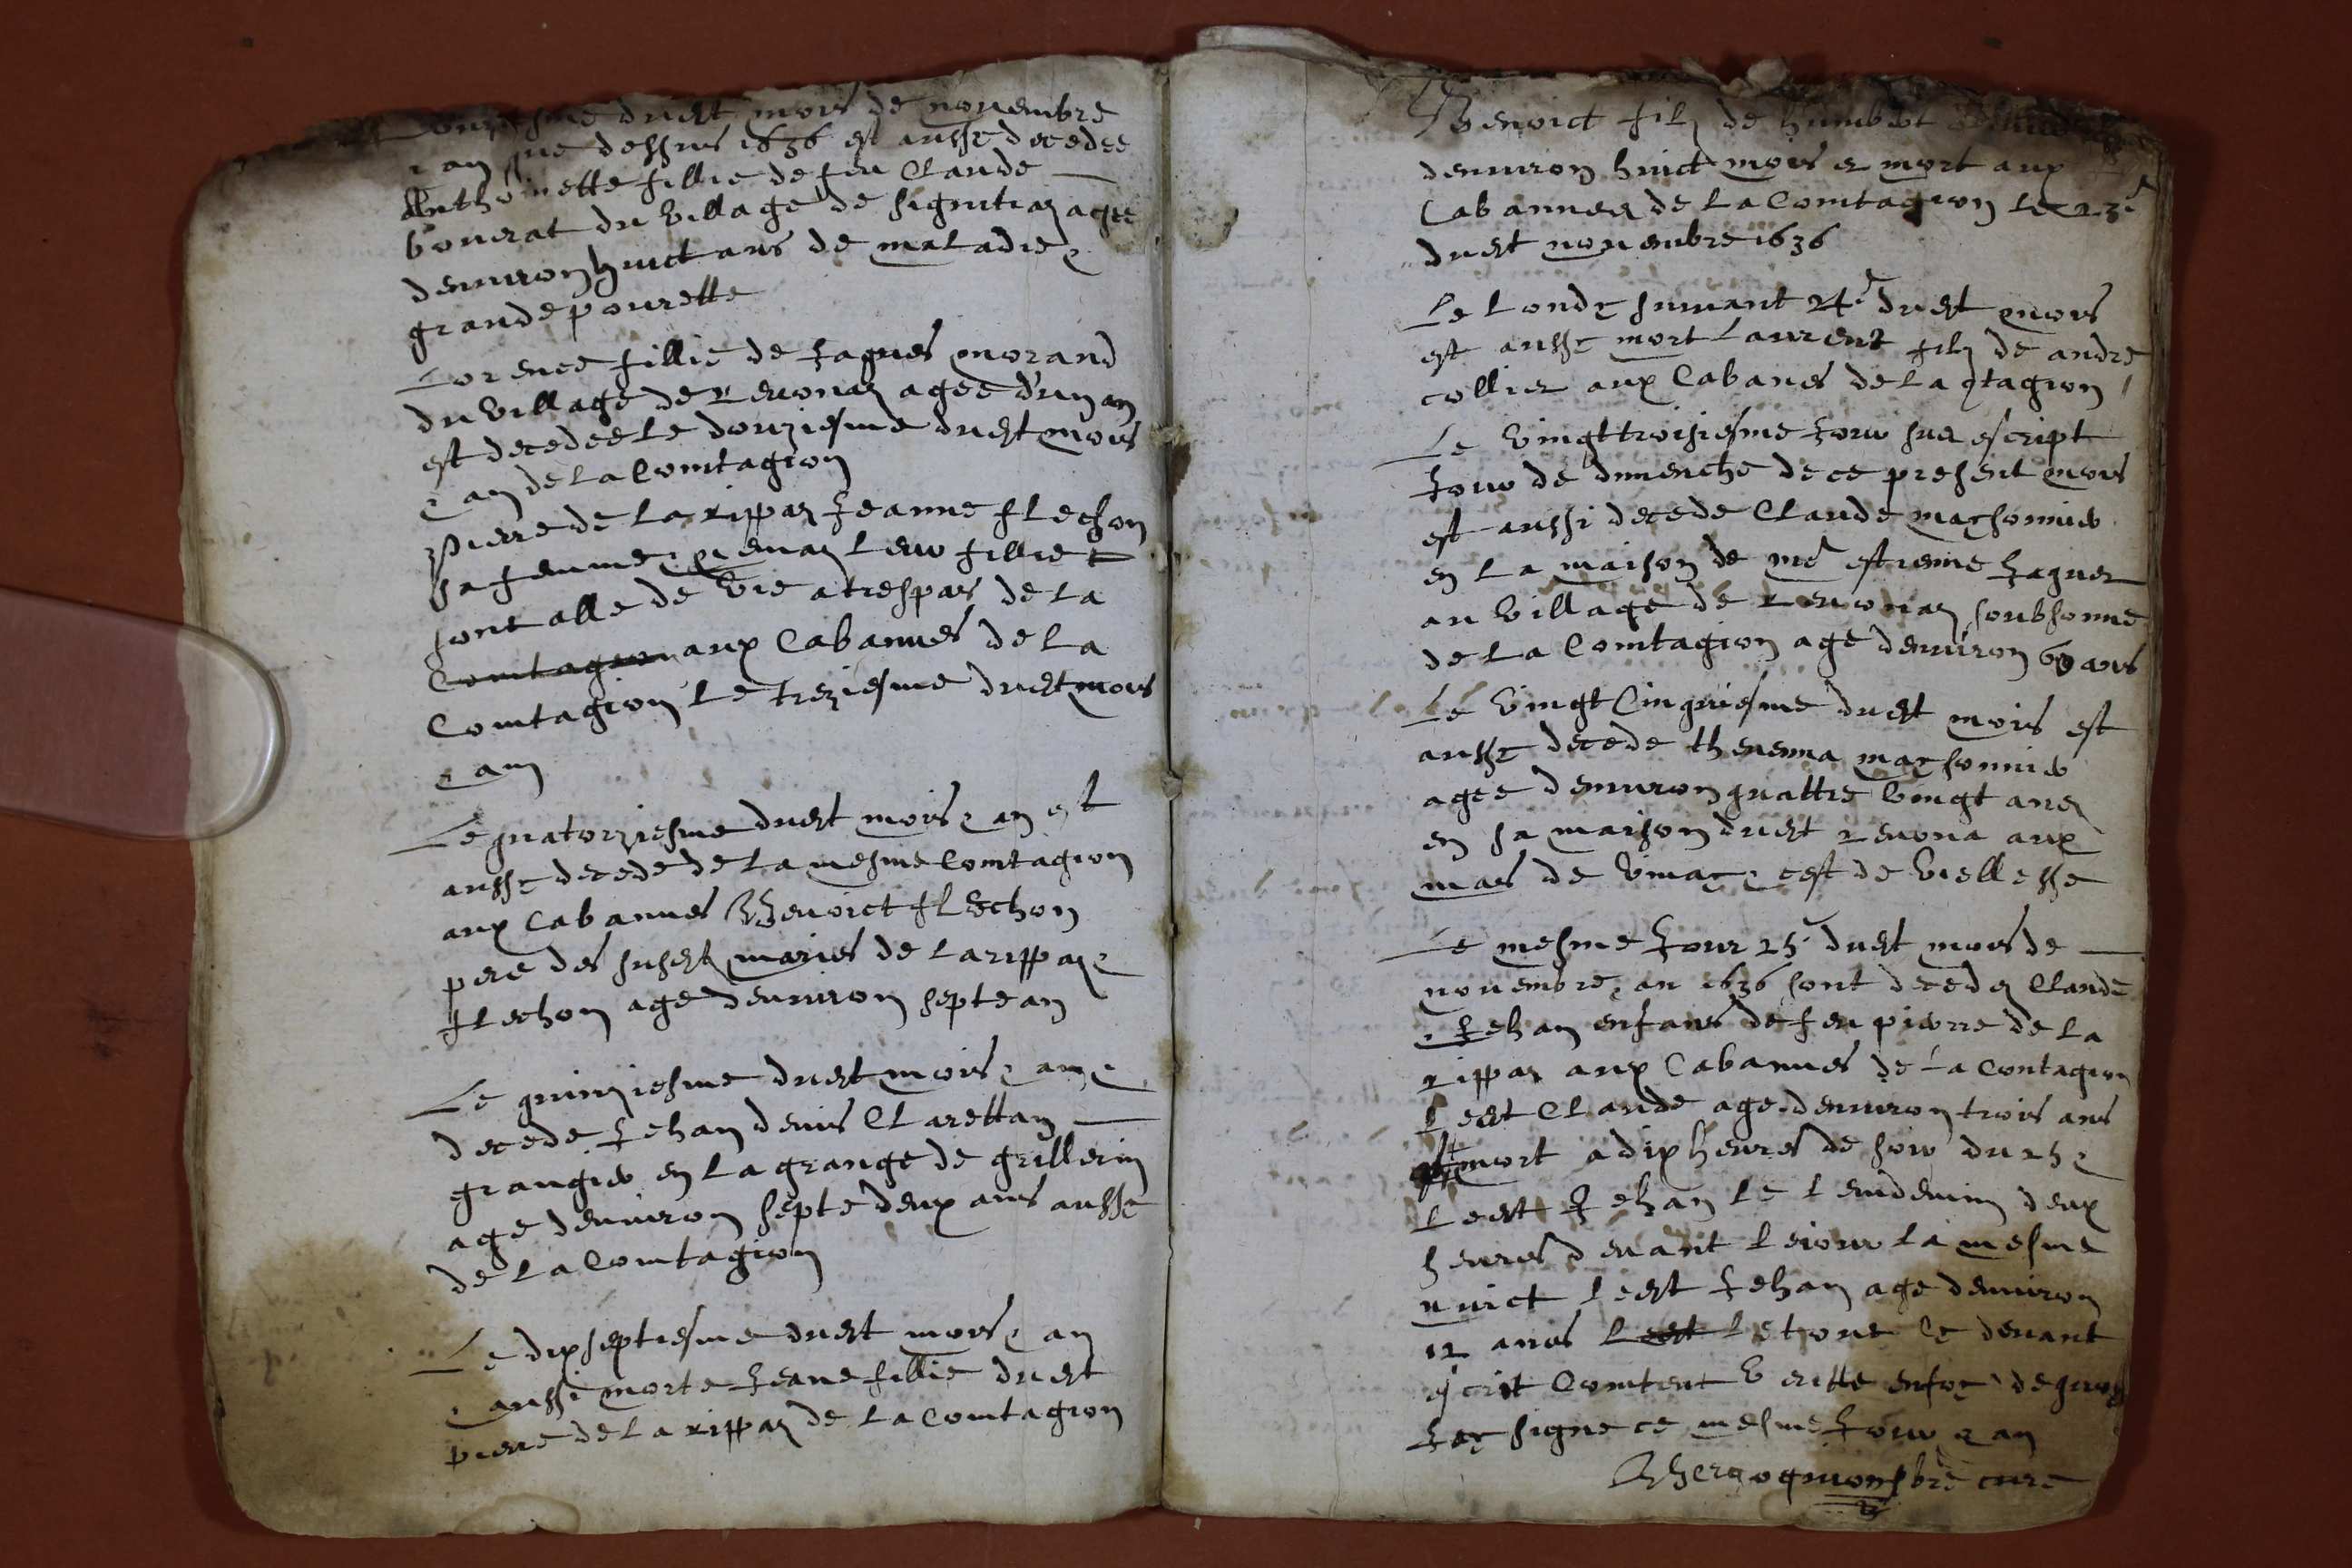 Onziesme duct mois de novembre
& an que dessus 1636 est aussy decedee
Anthoinette fillie de feu Claude
Bouvrat du village de Signitiaz agee
denviron huict ans de maladie &
grande pourette
Lorence fillie de Jaques Morand
du village de Revonaz agee d'un an
est decedee le douziesme duct mois
& an de la Comtagion
Pierre de la Rippaz Jeanne Flechon
sa femme & leur fillie
sont alle de vie a trespas de la
Comtagion aux Cabannes de la
Comtagion le treziesme duct mois
& an
Le quatorziesme duct mois & an est
aussy decede de la mesme Comtagion
aux Cabannes Benoict Flechon
pere des susdts maries de la Rippaz &
Flechon age denviron septe an
Le quinziesme duct mois & an &
decede Jehan Denis Clarettan
grangier en la grange de Grillerin
age denviron septe deux ans aussy
de la Comtagion
Le dixseptiesme duct mois & an
& aussi morte Jeane fillie duct
pierre de la Rippaz de la Comtagion
Benoict filz de Humbert
denviron huict mois & mort aux
Cabannes de la Comtagion le 23e
duct novembre 1636
Le londy suivant 24e duct mois
est aussy mort Laurent filz de andre
collier aux Cabanes de la 9tagion
Le vingt troisiesme jour sus escript
jour de dimenche de ce present mois
est aussi decede Claude Massonnier
en la maison de me Estienne Jaquet
au village de Revonaz soubsonne
de la Comtagion age denviron 60 ans
Le vingt Cinquiesme duct mois est
aussy decede Thevenna Massonnier
agee denviron quattre vingt ans
en sa maison duct Revona aux
mas de & cest de viellesse
Le mesme jour 25e duct mois de
novembre & an 1636 sont decedez Claude
& Jehan enfans de feu pierre de la
Rippaz aux Cabannes de la Contagion
lect Claude age denviron trois ans
est mort a dix heures de soir du 25 &
lect Jehan le lendemin deux
heures devant le iour la mesme
nuict lect Jehan age denviron
12 ans lect le tout cy devant
escrit Contient veritte en foy de quoy
Jay signe ce mesme jour & an
pbre cure